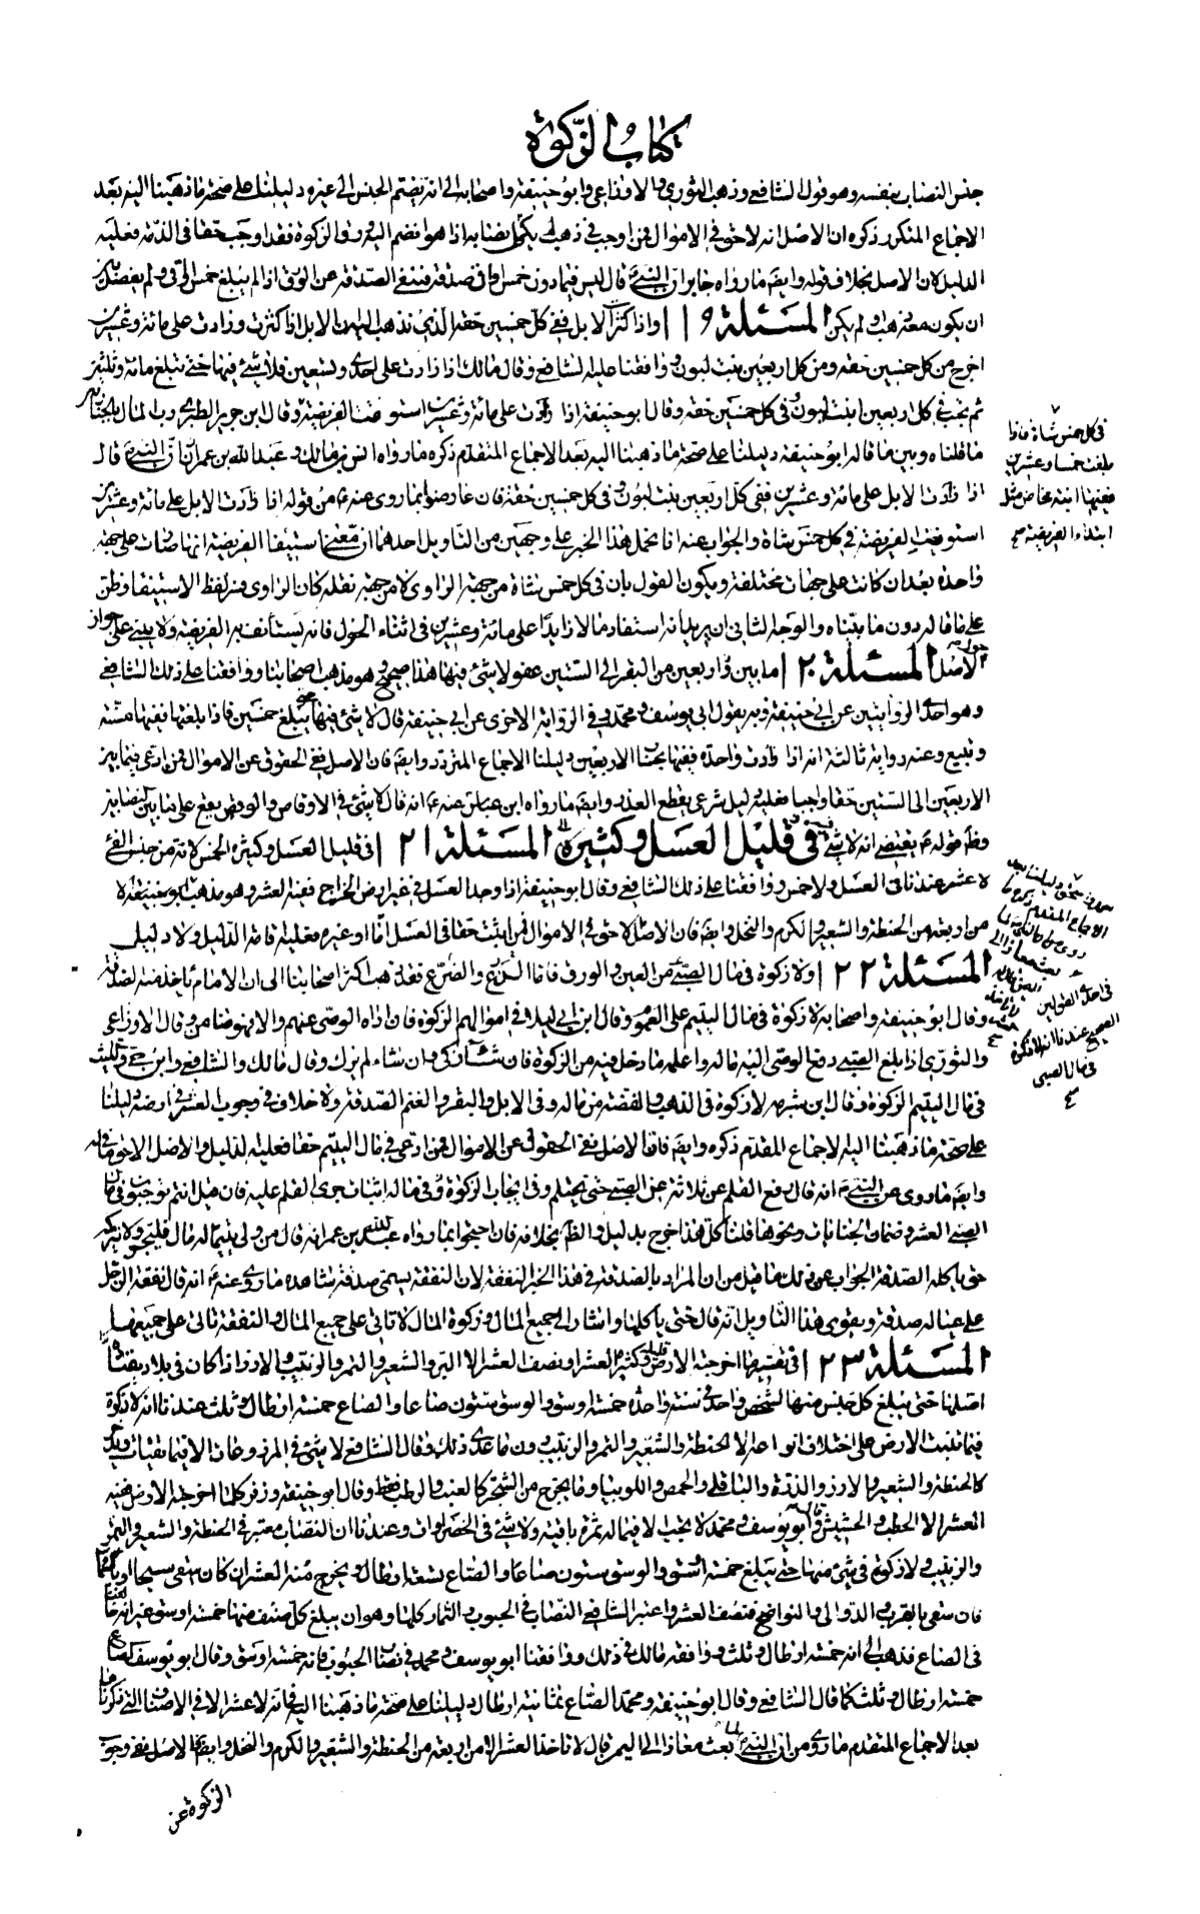 كتاب الزكوة
جنس النصاب بنفسه وهو قول الشافعي وذهب الثوري والاوزاعي وابو حنيفة واصحابه الى انه يضم الجنس الى غيره دليلنا على صحة ما ذهبنا اليه بعد
الاجماع المتكرر ذكره ان الاصل انه لا حق في الاموال فمن اوجب في ذهب لم يكمل نصابه اذا هو انضم اليه ورق الزكوة فقد اوجب حقا في الذمة فعليه
الدليل لان الاصل بخلاف قوله وايضا ما رواه جابر ان النبي قال ليس فيما دون خمس اواق صدقة فنفى الصدقة عن الورق اذا لم يبلغ خمس اواقي ولم يفصل بين
ان يكون معه ذهب ولم يكن المسئلة ١٩ واذا كثرت الابل ففي كل خمسين حقة الذي نذهب اليه ان الابل اذا كثرت وزادت على مائة وعشرين
اخرج من كل خمسين حقة ومن كل اربعين بنت لبون ووافقنا عليه الشافعي وقال مالك اذا زادت على احدى وتسعين فلا شئ فيها حتى تبلغ مائة وثلثين
ثم يجب في كل اربعين ابنت لبون وفي كل خمسين حقة وقال ابو حنيفة اذا زادت على مائة وعشرين استوفت الفريضة وقال ابن جرير الطبري رب المال بالخيار بين
ما قلناه وبين ما قاله ابو حنيفة دليلنا على صحة ما ذهبنا اليه بعد الاجماع المتقدم ذكره ما رواه انس بن مالك وعبد الله بن عمر ان النبي قال
اذا زادت الابل على مائة وعشرين ففي كل اربعين بنت لبون وفي كل خمسين حقة فان عارضوا بما روي عنه من قوله اذا زادت الابل على مائة وعشرين
استوفيت الفريضة في كل خمس شاة والجواب عنه انا نحمل هذا الخبر على وجهين من التاويل احدهما ان معنى استيفا الفريضة انها صارت على جهة
واحدة بعد ان كانت على جهات مختلفة ويكون القول بان في كل خمس شاة من جهة الراوي لا من جهة نقله كان الراوي فسر لفظ الاستيفا وظن
على ما قاله دون ما بيناه والوجه الثاني ان يريد انه استفاد مالا زايدا على مائة وعشرين في اثناء الحول فانه يستانف به الفريضة ولا يبنى على جواز
الاصل المسئلة ٢٠ ما بين اربعين من البقر الى الستين عفو لا شئ فيها هذا صحيح وهو مذهب اصحابنا ووافقنا على ذلك الشافعي
وهو احد الروايتين عن ابي حنيفة وبه يقول ابي يوسف ومحمد وفي الرواية الاخرى عن ابي حنيفة قال لا شئ فيها حتى تبلغ خمسين فاذا بلغتها ففيها مسنة
وتبيع وعنه رواية ثالثة انه اذا زادت واحدة ففيها بحساب الاربعين دليلنا الاجماع المتردد وايضا فان الاصل نفي الحقوق عن الاموال فمن ادعى فيما بين
الاربعين الى الستين حقا واجبا فعليه دليل شرعي يقطع العذر وايضا ما رواه ابن عباس عنه انه قال لا شئ في الاوقاص والوقص يقع على ما بين النصابين
وظاهر قوله يقتضي انه لا شئ فيه في قليل العسل وكثيره المسئلة ٢١ في قليل العسل وكثيره الخمس لانه من جنس الفئ
لا عشر عندنا في العسل ولا خمس ووافقنا على ذلك الشافعي وقال ابو حنيفة اذا وجد العسل في غير ارض الخراج ففيه العشر وهو مذهب ابو حنيفة لا
من اربعة من الحنطة والشعير والكرم والنخل وايضا فان الاصل لا حق في الاموال فمن اثبت حقا في العسل اما او غيره فعليه اقامة الدليل ولا دليل
المسئلة ٢٢ ولا زكوة في مال الصبي من العين والورق فاما الزرع والضرع فقد ذهب اكثر اصحابنا الى ان الامام ياخذ منه الصدقة
وقال ابو حنيفة واصحابه لا زكوة في مال اليتيم على العموم وقال ابن ابي ليلى في اموالهم الزكوة فان اداه الوصي عنهم والا فهو ضامن وقال الاوزاعي
والثوري اذا بلغ الصبي دفع الوصي اليه ماله واعلمه ما دخل فيه من الزكوة فان شاء زكى وان شاء لم يزك وقال مالك والشافعي وابن حي والليث
في مال اليتيم الزكوة وقال ابن شبرمة لا زكوة في الذهب والفضة من ماله وفي الابل والبقر والغنم الصدقة ولا خلاف في وجوب العشر في ارضه دليلنا
على صحة ما ذهبنا اليه الاجماع المتقدم ذكره وايضا فان الاصل نفي الحقوق عن الاموال فمن ادعى في مال اليتيم حقا فعليه الدليل والاصل الا حق في ماله
وايضا ما روى عن النبي انه قال رفع القلم عن ثلاثة عن الصبي حتى يحتلم وفي ايجاب الزكوة في ماله اثبات جري القلم عليه فان قيل انتم توجبون في مال
الصبي العشر وضمان الجنايات ونحوها قلنا كل هذا خرج بدليل والظاهر بخلافه فان احتجوا بما رواه عبد الله بن عمر انه قال من ولى يتيما له مال فليتجر ولا يتركه
حتى ياكله الصدقة الجواب عن ذلك ما قيل من ان المراد بالصدقة في هذا الخبر النفقة لان النفقة يسمى صدقة يشاهده ما روي عنه انه قال نفقة الرجل
على عياله صدقة ويقوى هذا التاويل انه قال حتى ياكلها واشار الى جميع المال وزكوة المال لا تاتي على جميع المال والنفقة تاتي على جميعها
المسئلة ٢٣ في تفسير ما اخرجته الارض قليله وكثيره العشر او نصف العشر الا البر والشعير والتمر والزبيب والارز اذا كان في بلاد يقتات
اصلها حتى يبلغ كل جنس منها الشخص واحد في سنة واحدة خمسة اوسق والوسق ستون صاعا والصاع خمسة ارطال وثلث عندنا انه لا زكوة
فيما تنبت الارض على اختلاف انواعه الا الحنطة والشعير والتمر والزبيب دون ما عدى ذلك وقال الشافعي لا شئ في المزروعات الا فيما تقتات ويدخر
كالحنطة والشعير والارز والذرة والباقلي والحمص واللوبيا وما يخرج من الشجر كالعنب والرطب فقط وقال ابو حنيفة وزفر كلما اخرجته الارض ففيه
العشر الا الحطب والحشيش وقال ابو يوسف ومحمد لا يجب الا فيما له ثمرة باقية ولا شئ في الخضراوات وعندنا ان النصاب معتبر في الحنطة والشعير والتمر
والزبيب ولا زكوة في شئ منها حتى يبلغ خمسة اوسق والوسق ستون صاعا والصاع تسعة ارطال ويخرج منه العشر ان كان سقي سيحا او بالسماء
فان سقي بالقرب والدوالى والنواضح فنصف العشر واعتبر الشافعي النصاب في الحبوب والثمار كلها وهو ان يبلغ كل صنف منها خمسة اوسق غير انه خالفنا
في الصاع فذهب الى انه خمسة ارطال وثلث ووافقه مالك في ذلك ووافقنا ابو يوسف ومحمد في نصاب الحبوب فانه خمسة اوسق وقال ابو يوسف الصاع
خمسة ارطال وثلث كما قال الشافعي وقال ابو حنيفة ومحمد الصاع ثمانية ارطال دليلنا على صحة ما ذهبنا اليه فانه لا عشر الا في الاصناف التي ذكرناها
بعد الاجماع المتقدم ما روي من ان النبي لما بعث معاذا الى اليمن قال لا تاخذ العشر الا من اربعة من الحنطة والشعير والكرم والنخل وايضا فالاصل نفي وجوب
الزكوة عن
في كل خمس شاة فاذا
بلغت خمسا وعشرين
ففيها ابنة مخاض مثل
ابتداء الفريضة صح
الاجماع المتقدم ذكره
في احد القولين
الصحيح عندنا انه لا زكوة
في مال الصبي
صح